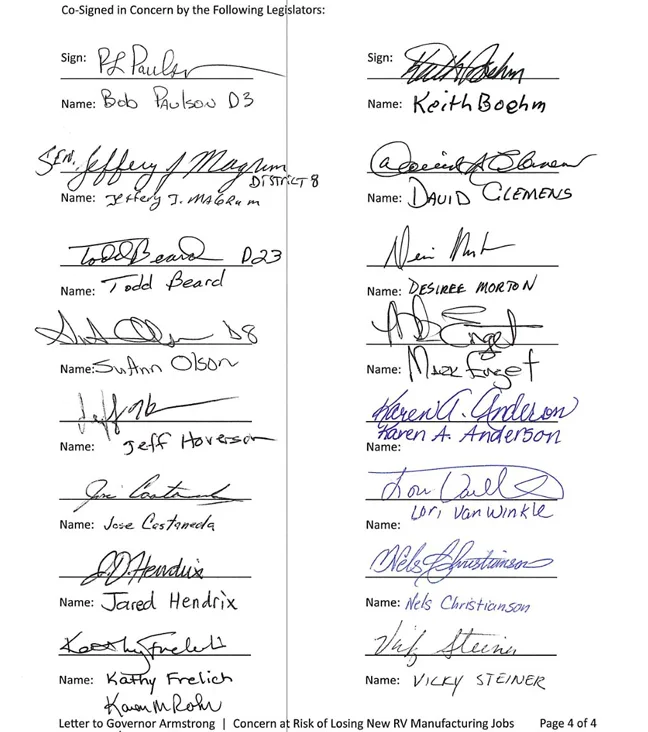 Co-Signed in Concern by the Following Legislators:
Sign: RL Paulson
Name: Bob Paulson D3
Sen. Jeffery J Magrum
District 8
Name: Jeffery J. Magrum
Todd Beard D23
Name: Todd Beard
SuAnn Olson D8
Name: SuAnn Olson
Jeff
Name: Jeff Hoverson
Jose Castaneda
Name: Jose Castaneda
J.D. Hendrix
Name: Jared Hendrix
Kathy Frelich
Name: Kathy Frelich
Karen M Rohr
Sign: Keith Boehm
Name: Keith Boehm
David Clemens
Name: DAVID CLEMENS
Name: DESIREE MORTON
Enget
Name: Mark Enget
Karen A. Anderson
Karen A. Anderson
Name:
Lori VanWinkle
Name:
Nels Christianson
Name: Nels Christianson
Vicky Steiner
Name: VICKY STEINER
Letter to Governor Armstrong | Concern at Risk of Losing New RV Manufacturing Jobs Page 4 of 4